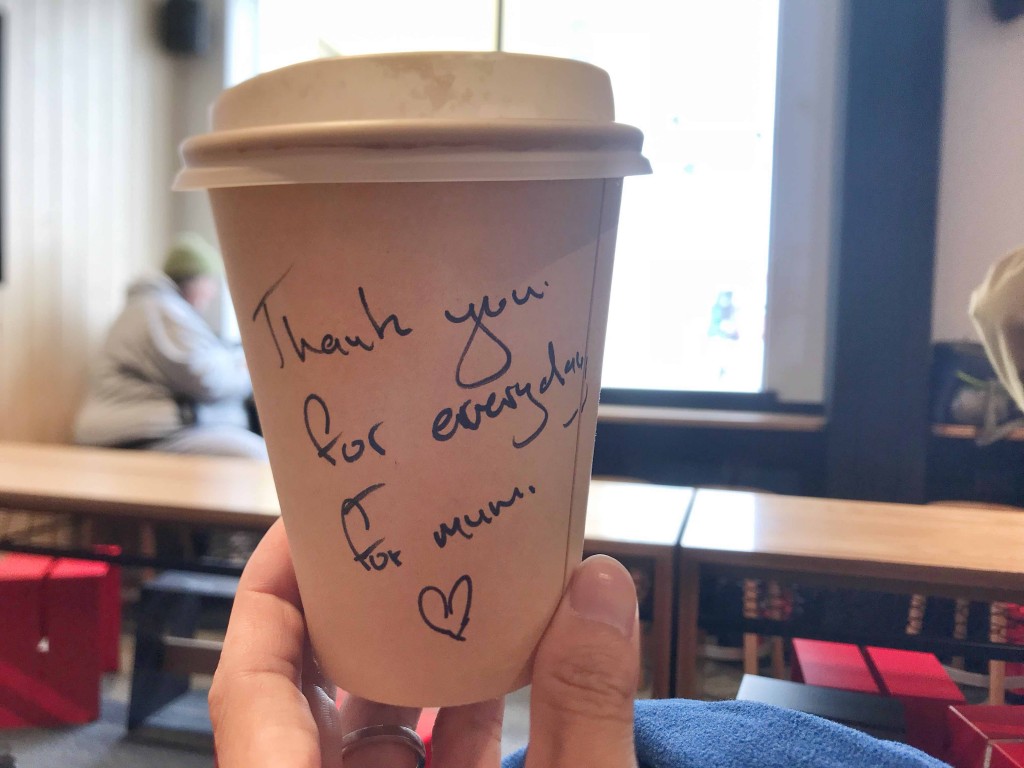 Thank you.
for everyday
For mum.
♡